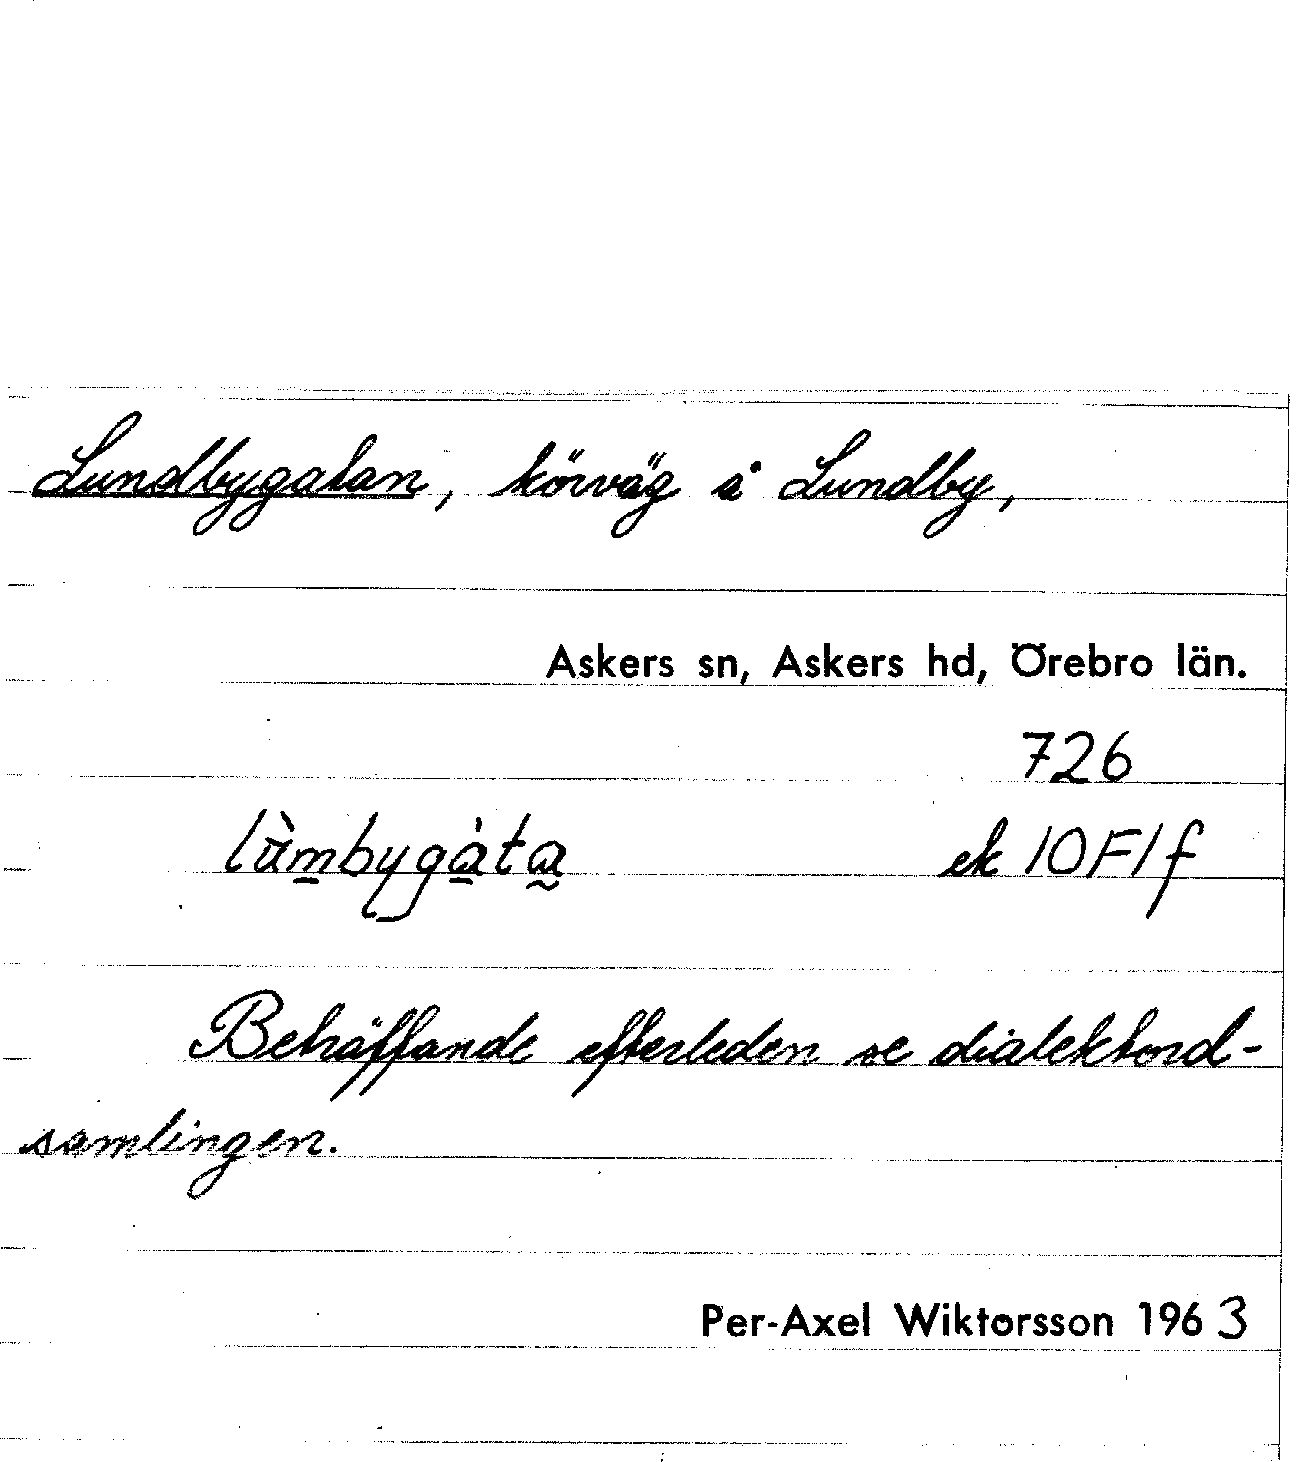 Lundbygatan, körväg å Lundby,
Askers sn, Askers hd, Örebro län.
726
lùmbygàta ek 10F1f
Beträffande efterleden se dialektord-
samlingen.
Per-Axel Wiktorsson 1963